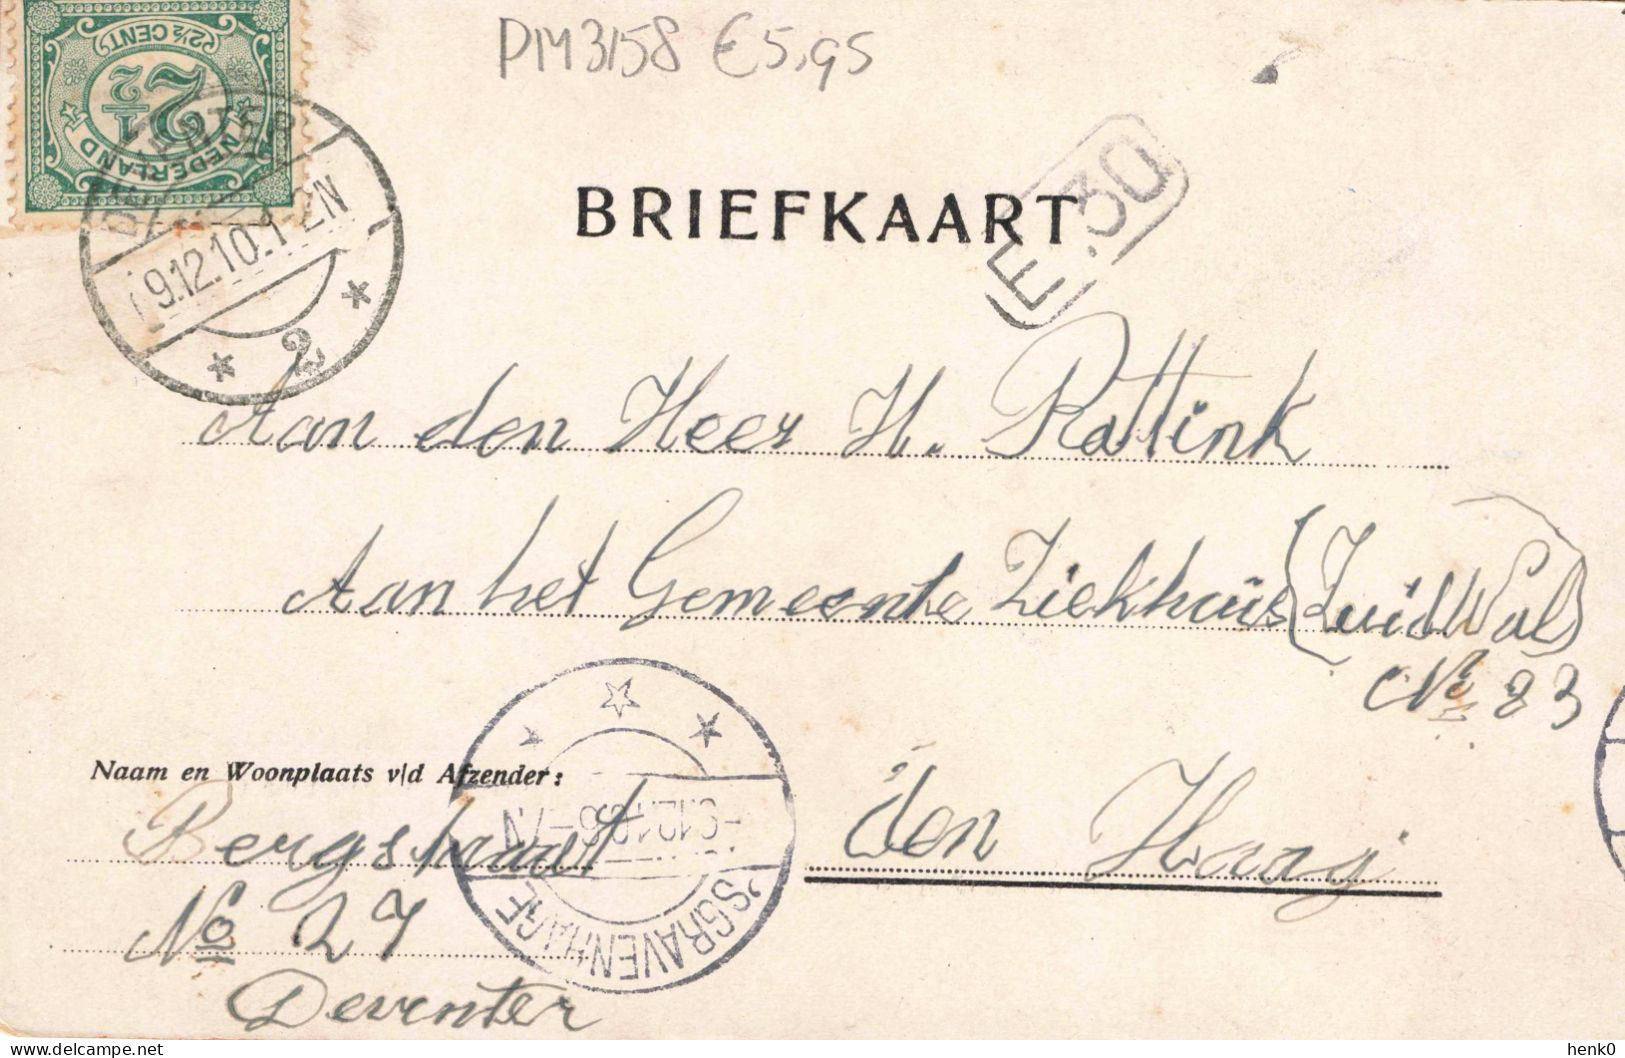 PM3158 €5,95
2½ CENT
2½
NEDERLAND
DEVENTER
9.12.10.1-2N
2
BRIEFKAART
E.30
Aan den Heer H. Rattink
Aan het Gemeente Ziekhuis (Zuid Wal)
No 23
Naam en Woonplaats v/d Afzender:
Bergstraat
No 27
Deventer
den Haag
'SGRAVENHAGE
delcampe.net
henk0